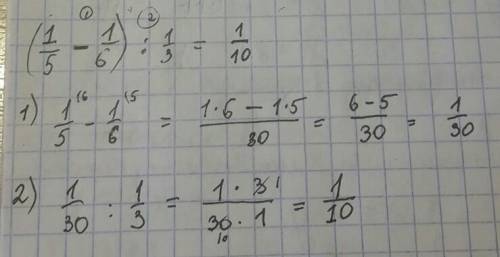 (1/5 ①− 1/6) ②: 1/3 = 1/10
1) 1/5⁽⁶ − 1/6⁽⁵ = (1·6 − 1·5)/30 = (6−5)/30 = 1/30
2) 1/30 : 1/3 = (1 · 3 1)/(30 10 · 1) = 1/10